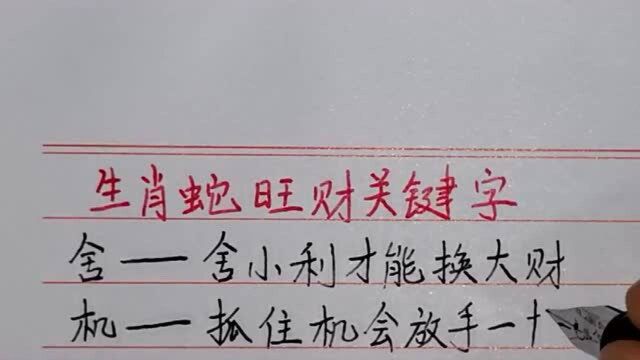 生肖蛇旺财关键字
舍一舍小利才能换大财
机一抓住机会放手一